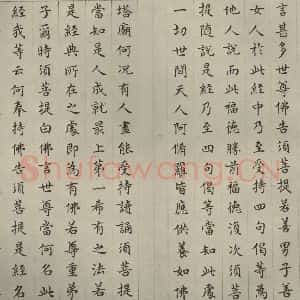 言甚多世尊佛告須菩提若善男子善
女人於此經中乃至受持四句偈等為
他人說而此福德勝前福德復次須菩
提隨說是經乃至四句偈等當知此處
一切世間天人阿修羅皆應供養如佛
塔廟何況有人盡能受持讀誦須菩提
當知是人成就最上第一希有之法若
是經典所在之處即為有佛若尊重弟
子爾時須菩提白佛言世尊當何名此
經我等云何奉持佛告須菩提是經名
Shufawang.CN